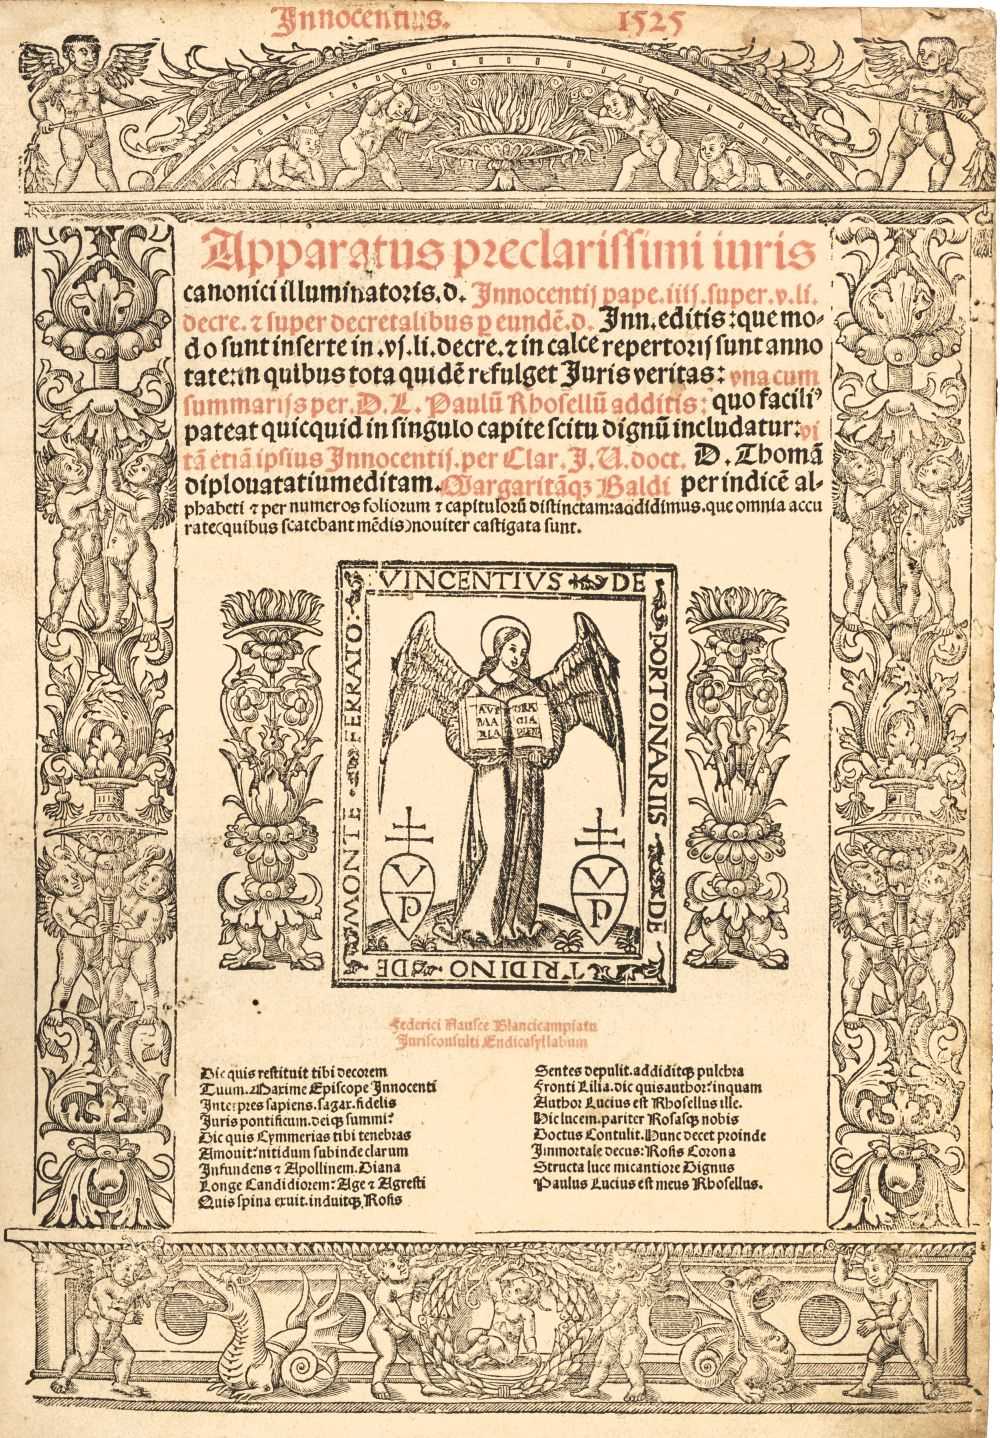 Innocentius. 1525
Apparatus preclarissimi iuris
canonici illuminatoris.d. Innocentij pape.iiij.super.v.li.
decre. ⁊ super decretalibus p eundē.d. Inn.editis:que mo-
do sunt inserte in.vj.li.decre.⁊ in calce repertorij sunt anno
tate:in quibus tota quidē refulget Juris veritas: vna cum
summarijs per.D.L. Paulū Rhosellū additis: quo facili⁹
pateat quicquid in singulo capite scitu dignū includatur: vi
tā etiā ipsius Innocentij.per Clar.J.U.doct. D. Thomā
diplouatatiumeditam. Margaritāqꝫ Baldi per indicē al-
phabeti ⁊ per numeros foliorum ⁊ capitulorū distinctam:addidimus.que omnia accu
rate(quibus scatebant mēdis)nouiter castigata sunt.
VINCENTIVS DE
PORTONARIIS DE
TRIDINO DE
MONTE FERRATO:
AVE GRA
MA CIA
RIA PLENA
V P
V P
Federici Nausee Blancicampiatu
Jurisconsulti Endicasyllabum
Dic quis restituit tibi decorem
Tuum.Maxime Episcope Innocenti
Interpres sapiens.sagax.fidelis
Juris pontificum.deiqꝫ summi?
Dic quis Cymmerias tibi tenebras
Amouit?nitidum subinde clarum
Infundens ⁊ Apollinem.Diana
Longe Candidiorem? Age ⁊ Agresti
Quis spina exuit.induitqꝫ Rosis
Sentes depulit.addiditqꝫ pulchra
Fronti Lilia.dic quis author?inquam
Author Lucius est Rhosellus ille.
Hic lucem.pariter Rosasqꝫ nobis
Doctus Contulit.Hunc decet proinde
Immortale decus:Rosis Corona
Structa luce micantiore Dignus
Paulus Lucius est meus Rhosellus.